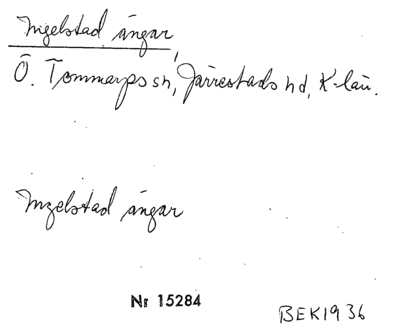 Ingelstad ängar,
Ö. Tommarps sn, Järrestads hd, K-län.
Ingelstad ängar
Nr 15284
BEK1936